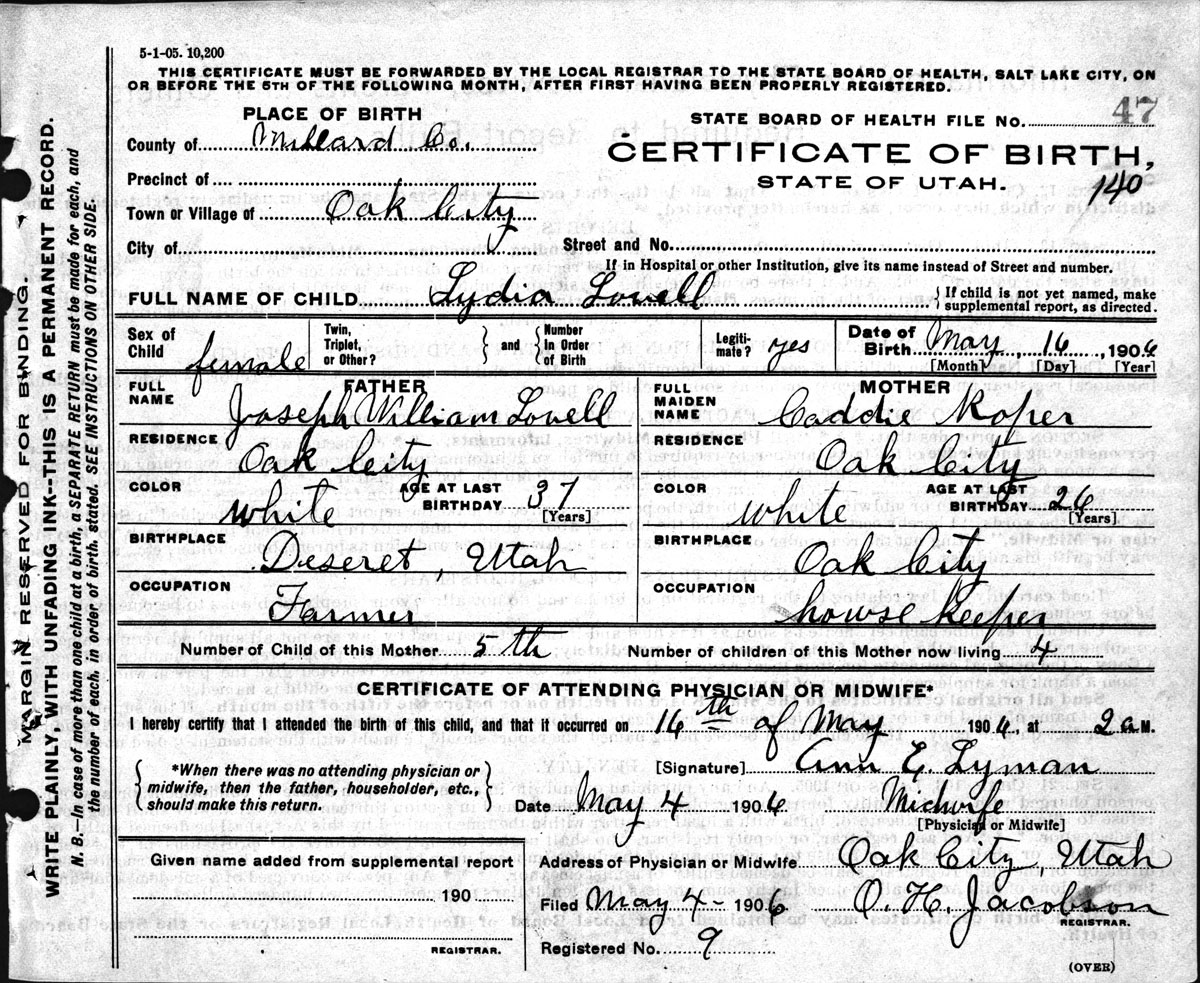 5-1-05. 10,200
THIS CERTIFICATE MUST BE FORWARDED BY THE LOCAL REGISTRAR TO THE STATE BOARD OF HEALTH, SALT LAKE CITY, ON
OR BEFORE THE 5TH OF THE FOLLOWING MONTH, AFTER FIRST HAVING BEEN PROPERLY REGISTERED.
PLACE OF BIRTH
STATE BOARD OF HEALTH FILE NO. 47
County of Millard Co.
CERTIFICATE OF BIRTH,
Precinct of
STATE OF UTAH. 140
Town or Village of Oak City
City of Street and No.
If in Hospital or other Institution, give its name instead of Street and number.
FULL NAME OF CHILD Lydia Lovell { If child is not yet named, make
supplemental report, as directed.
Sex of Child female Twin, Triplet, or Other? } and { Number In Order of Birth Legiti-mate? yes Date of Birth May, 16, 1906
[Month] [Day] [Year]
FATHER
FULL NAME Joseph William Lovell
RESIDENCE
Oak City
COLOR white AGE AT LAST BIRTHDAY 37
[Years]
BIRTHPLACE
Deseret, Utah
OCCUPATION
Farmer
MOTHER
FULL MAIDEN NAME Caddie Roper
RESIDENCE
Oak City
COLOR white AGE AT LAST BIRTHDAY 26
[Years]
BIRTHPLACE
Oak City
OCCUPATION
howse keeper
Number of Child of this Mother 5th Number of children of this Mother now living 4
CERTIFICATE OF ATTENDING PHYSICIAN OR MIDWIFE*
I hereby certify that I attended the birth of this child, and that it occurred on 16th of May 1906, at 2 a.M.
[Signature] Ann E. Lyman
{ *When there was no attending physician or
midwife, then the father, householder, etc.,
should make this return. }
Date May 4 1906 Midwife
[Physician or Midwife]
Given name added from supplemental report
190
REGISTRAR.
Address of Physician or Midwife Oak City, Utah
Filed May 4 - 1906 O. H. Jacobson
REGISTRAR.
Registered No. 9
(OVER)
MARGIN RESERVED FOR BINDING.
WRITE PLAINLY, WITH UNFADING INK--THIS IS A PERMANENT RECORD.
N. B.—In case of more than one child at a birth, a SEPARATE RETURN must be made for each, and
the number of each, in order of birth, stated. SEE INSTRUCTIONS ON OTHER SIDE.